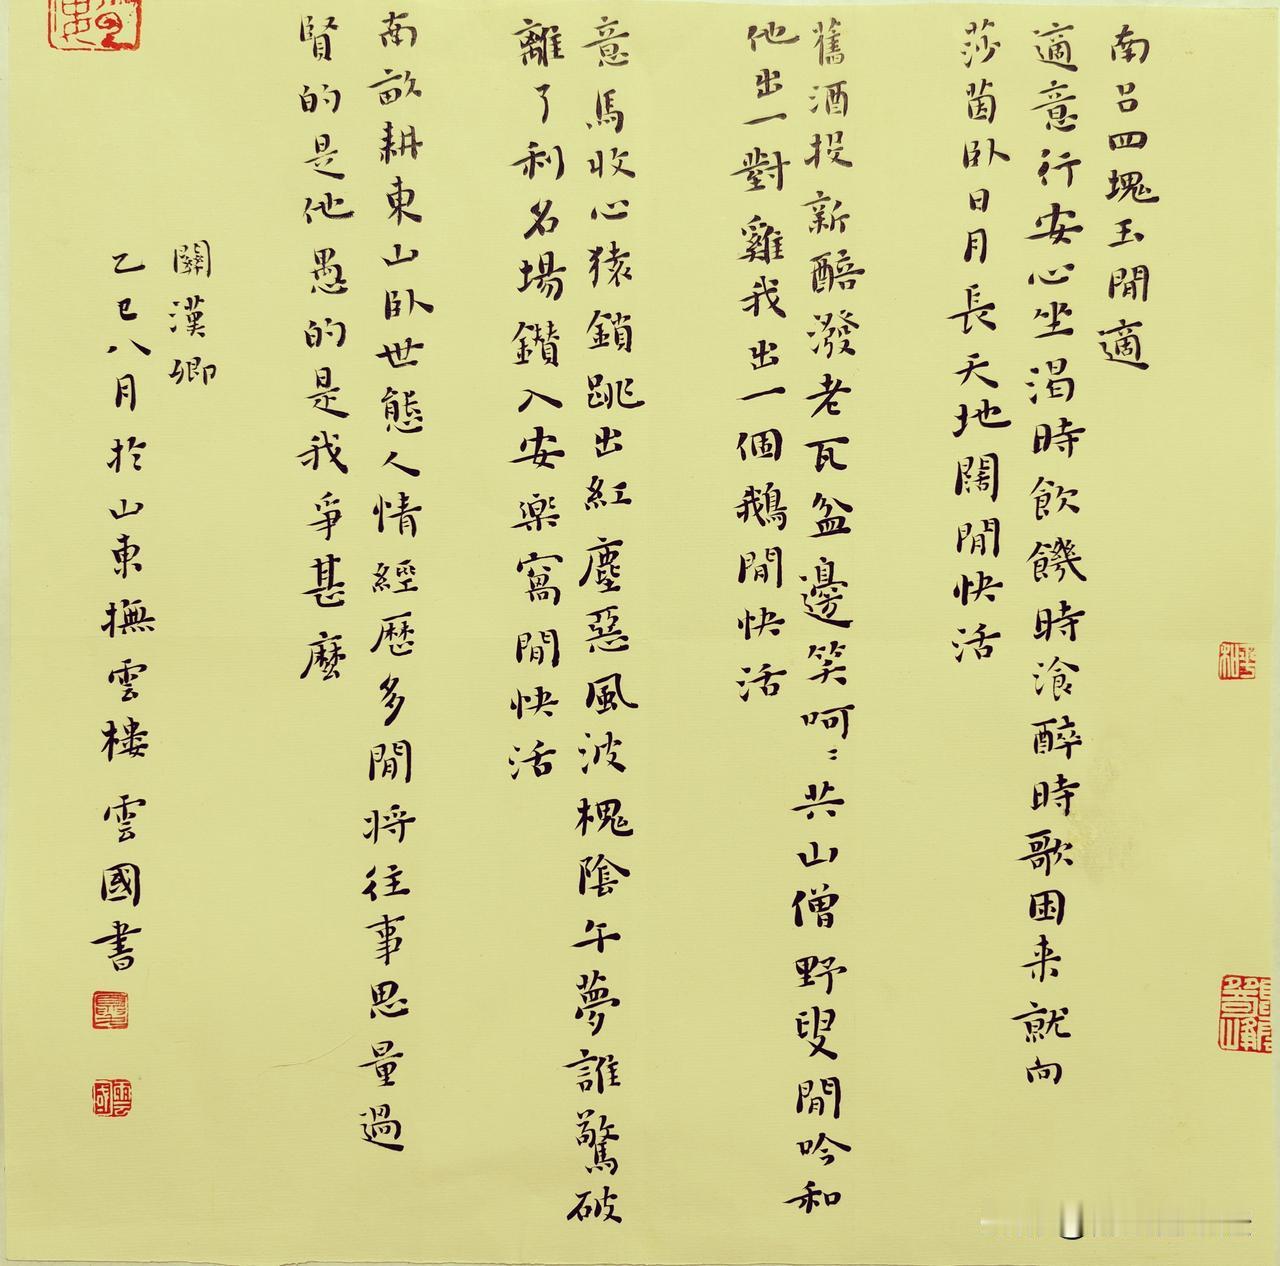 南呂四塊玉閒適
適意行安心坐渴時飲饑時飡醉時歌困来就向
莎茵卧日月長天地闊閒快活
舊酒投新醅潑老瓦盆邊笑呵〻共山僧野叟閒吟和
他出一對雞我出一個鵝閒快活
意馬收心猿鎖跳出紅塵惡風波槐陰午夢誰驚破
離了利名場鑽入安樂窩閒快活
南畝耕東山卧世態人情經歷多閒将往事思量過
賢的是他愚的是我爭甚麼
關漢卿
乙巳八月於山東撫雲樓雲國書
雲國